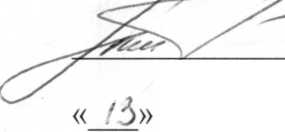 «13»